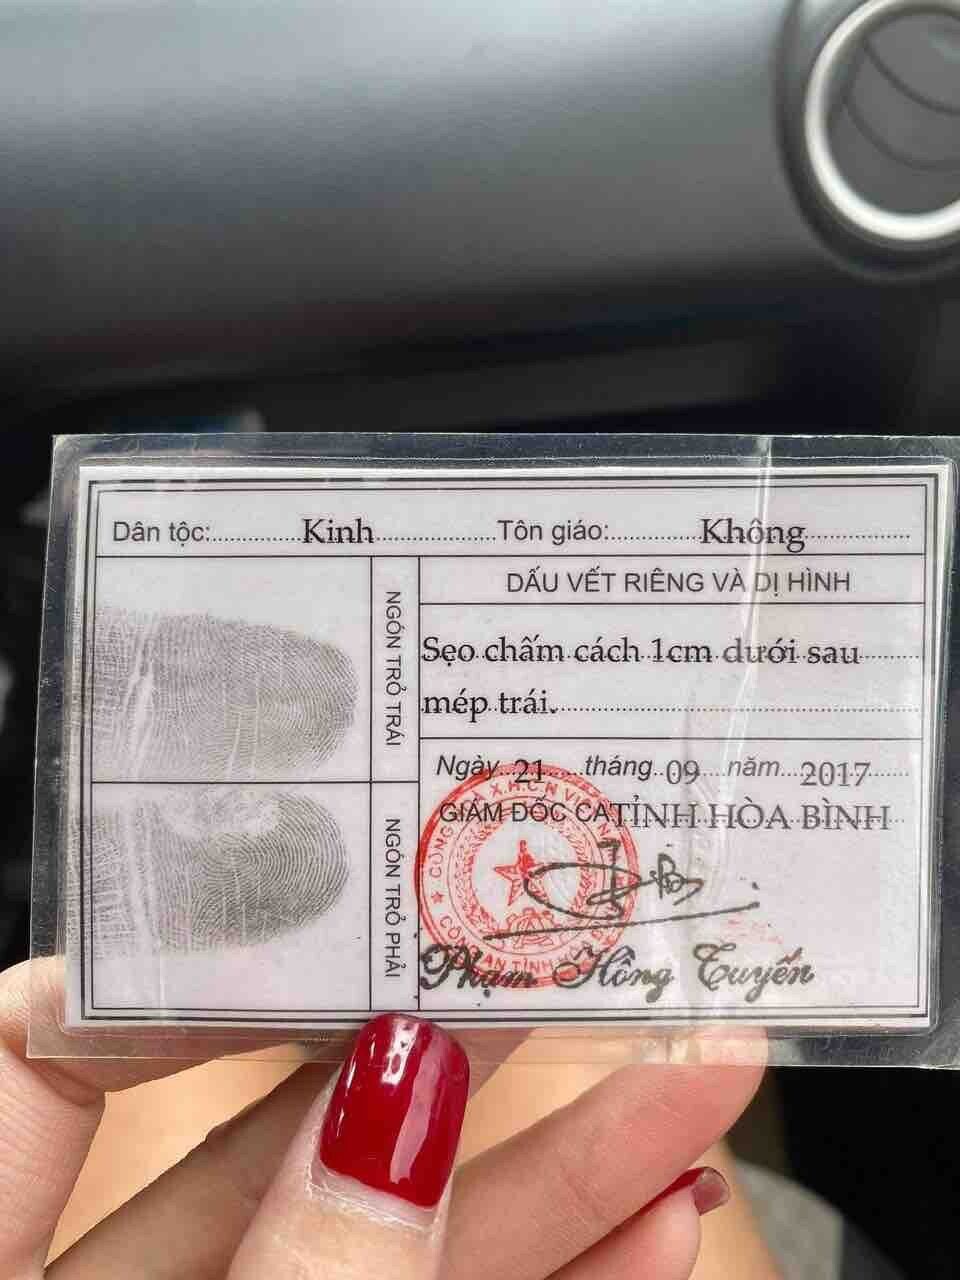 Dân tộc: Kinh Tôn giáo: Không
DẤU VẾT RIÊNG VÀ DỊ HÌNH
NGÓN TRỎ TRÁI
Sẹo chấm cách 1cm dưới sau
mép trái.
Ngày 21 tháng 09 năm 2017
GIÁM ĐỐC CA TỈNH HÒA BÌNH
NGÓN TRỎ PHẢI
Phạm Hồng Tuyến